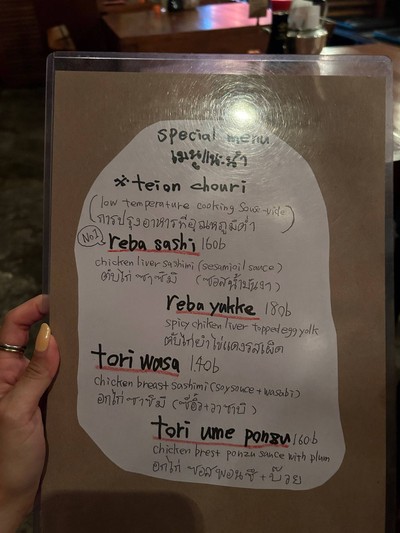 special menu
เมนูแนะนำ
※teion chouri
(low temperature cooking Sous-vide)
(การปรุงอาหารที่อุณหภูมิต่ำ)
No1 reba sashi 160b
chicken liver sashimi (sesamioil sauce)
ตับไก่ ซาซิมิ (ซอสน้ำมันงา)
reba yukke 180b
spicy chiken liver topped egg yolk
ตับไก่ยำไข่แดงรสเผ็ด
tori wasa 140b
chicken breast sashimi (soysauce + wasabi)
อกไก่ ซาซิมิ (ซีอิ๊ว+วาซาบิ)
tori ume ponzu 160b
chicken brest ponzu sauce with plum
อกไก่ ซอสพอนซึ + บ๊วย